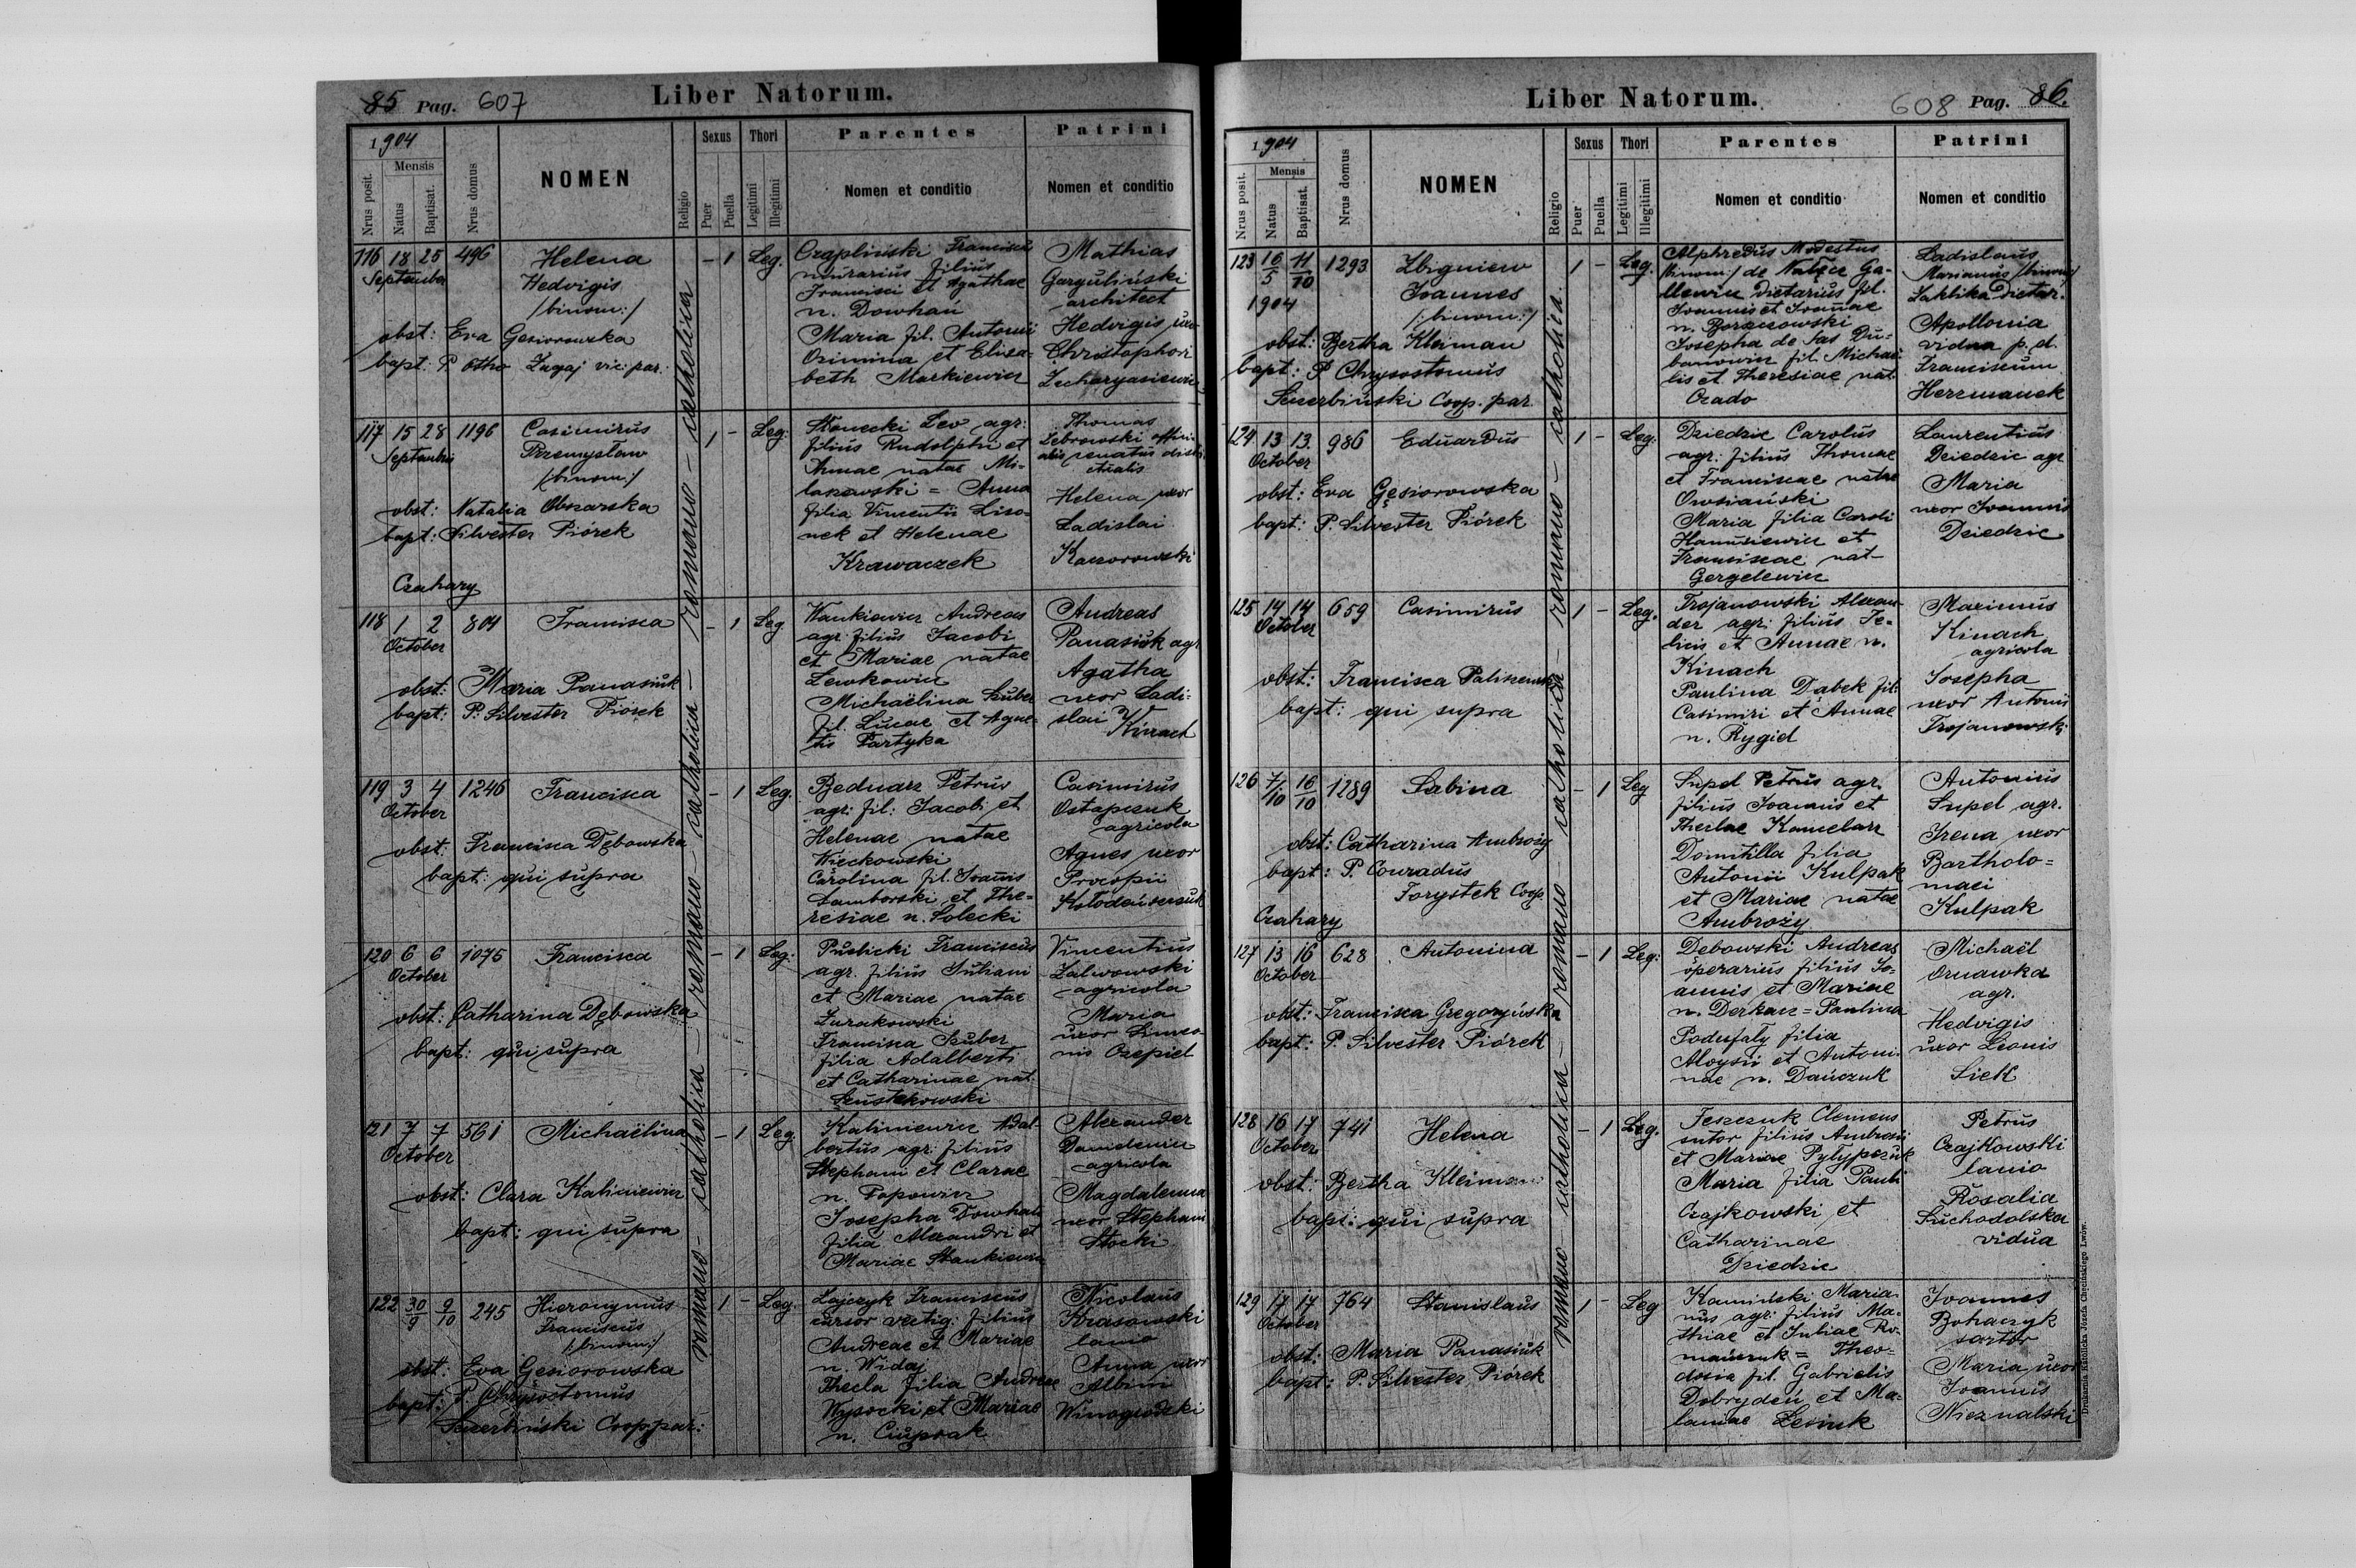 85 Pag. 607
Liber Natorum.
1904
Mensis
Nrus posit.
Natus
Baptisat.
Nrus domus
NOMEN
Religio
Sexus
Puer
Puella
Thori
Legitimi
Illegitimi
Parentes
Nomen et conditio
Patrini
Nomen et conditio
romano - catholica - romano - catholica - romano - catholica - romano - catholica
116 18 25 496 Helena - 1 Leg.
September Hedvigis
/binom:/
obst: Eva Gesiorowska
bapt: P Otho Zagaj vic: par:
Czapliński Franciscus
murarius filius
Francisci et Agathae
n. Dowhań
Maria fil. Antonii
Ozimina et Elisa-
beth Markiewicz
Mathias
Garguliński
architect
Hedvigis uxor
Christophori
Zacharyasiewicz
117 15 28 1196 Casimirus 1 - Leg.
Septembris Przemysław
/binom:/
obst: Natalia Obszarska
bapt: Silvester Piórek
Czahary
Słonecki Leo agr:
filius Rudolphi et
Annae natae Mi-
laszewski = Anna
filia Vincentii Liso-
nek et Helenae
Krawaczek
Thomas
Zebrowski
Helena uxor
Ladislai
Kaczorowski
118 1 2 804 Francisca - 1 Leg
October
obst: Maria Panasiuk
bapt: P. Silvester Piórek
Wankiewicz Andreas
agr: filius Jacobi
et Mariae natae
Lewkowicz
Michaëlina Szuber
fil. Lucae et Agne-
tis Partyka
Andreas
Panasiuk agr
Agatha
uxor Ladi-
slai
Kinach
119 3 4 1246 Francisca - 1 Leg.
October
obst: Francisca Dębowska
bapt: qui supra
Bednarz Petrus
agr: fil: Jacobi et
Helenae natae
Więckowski
Carolina fil. Joannis
Samborski et The-
resiae n. Solecki
Casimirus
Ostapczuk
agricola
Agnes uxor
Procopii
120 6 6 1075 Francisca - 1 Leg:
October
obst: Catharina Dębowska
bapt: qui supra
Puslicki Franciscus
agr. filius Juliani
et Mariae natae
Żurakowski
Francisca Szuber
filia Adalberti
et Catharinae nat.
Szustakowski
Vincentius
Zalwowski
agricola
Maria
uxor Simeo-
nis Czepiel
121 7 7 561 Michaëlina - 1 Leg.
October
obst: Clara Kaliniewicz
bapt: qui supra
Kaliniewicz Adal-
bertus agr: filius
Stephani et Clarae
n. Popowicz
Josepha Dowhań
filia Alexandri et
Mariae Stankiewicz
Alexander
Danilewicz
agricola
Magdalenna
uxor Stephani
Stocki
122 30/9 9/10 245 Hieronymus 1 - Leg.
Franciscus
/:binom:/
obst: Eva Gesiorowska
bapt: P. Chrysostomus
Szczerbiński Coop: par:
Lajczyk Franciscus
cursor vectig: filius
Andreae et Mariae
n. Widaj
Thecla filia Andreae
Wysocki et Mariae
n. Ciuprak
Nicolaus
Krasowski
lanio
Anna uxor
Albini
Winogrodzki
Liber Natorum.
608 Pag. 86.
1904
Mensis
Nrus posit.
Natus
Baptisat.
Nrus domus
NOMEN
Religio
Sexus
Puer
Puella
Thori
Legitimi
Illegitimi
Parentes
Nomen et conditio
Patrini
Nomen et conditio
romano catholica - romano catholica - romano - catholica - romano - catholica.
123 16/5 11/10 1293 Zbigniew 1 - Leg.
1904 Joannes
/:binom:/
obst: Bertha Kleiman
bapt: P Chrysostomus
Szczerbiński Coop. par.
Alphredus Modestus
/binom:/ de Nałęcz Ga-
llewicz dietarius fil.
Joannis et Joannae
n. Borzecowski
Josepha de Sas Du-
banowicz fil. Michaë-
lis et Theresiae nat.
Czado
Ladislaus
Marianus /binom:/
Sahlika dietar.
Apollonia
vidua p. d.
Franciscum
Herzmanek
124 13 13 986 Eduardus 1 - Leg.
October
obst: Eva Gęsiorowska
bapt: P. Silvester Piórek
Dziedzic Carolus
agr: filius Thomae
et Franciscae natae
Owsiański
Maria filia Caroli
Hanusiewicz et
Franciscae nat-
Gergelewicz
Laurentius
Dziedzic agr
Maria
uxor Joannis
Dziedzic
125 14 14 659 Casimirus 1 - Leg.
October
obst: Francisca Paliszewska
bapt: qui supra
Trojanowski Alexan-
der agr: filius Fe-
licis et Annae n.
Kinach
Paulina Dąbek fil:
Casimiri et Annae
n. Rygiel
Maximus
Kinach
agricola
Josepha
uxor Antonii
Trojanowski
126 7/10 16/10 1289 Sabina - 1 Leg
obst: Catharina Ambroży
bapt: P. Conradus
Forystek Coop.
Czahary
Supel Petrus agr.
filius Joannis et
Theclae Kancelarz
Domitilla filia
Antonii Kulpak
et Mariae natae
Ambroży
Antonius
Supel agr.
Irena uxor
Bartholo=
maei
Kulpak
127 13 16 628 Antonina - 1 Leg:
October
obst: Francisca Gregorzyńska
bapt: P. Silvester Piórek
Dębowski Andreas
operarius filius Jo-
annis et Mariae
n. Derkacz = Paulina
Podufały filia
Aloysii et Antoni-
nae n. Dańczuk
Michaël
Drnawka
agr.
Hedvigis
uxor Leonis
Siek
128 16 17 741 Helena - 1 Leg.
October
obst: Bertha Kleiman
bapt: qui supra
Feszczuk Clemens
sutor filius Ambrosii
et Mariae Pylypczuk
Maria filia Pauli
Czajkowski et
Catharinae
Dziedzic
Petrus
Czajkowski
lanio
Rosalia
Suchodolska
vidua
129 17 17 764 Stanislaus 1 - Leg
October
obst: Maria Panasiuk
bapt: P. Silvester Piórek
Kamiński Maria-
nus agr: filius Ma-
thiae et Juliae Ro-
mańczuk = Theo-
dosia fil. Gabrielis
Dobrydeń et Ma-
laniae Lesiuk
Joannes
Bohaczyk
sartor
Maria uxor
Joannis
Nieznalski
Drukarnia Katolicka Józefa Chęcińskiego Lwów.